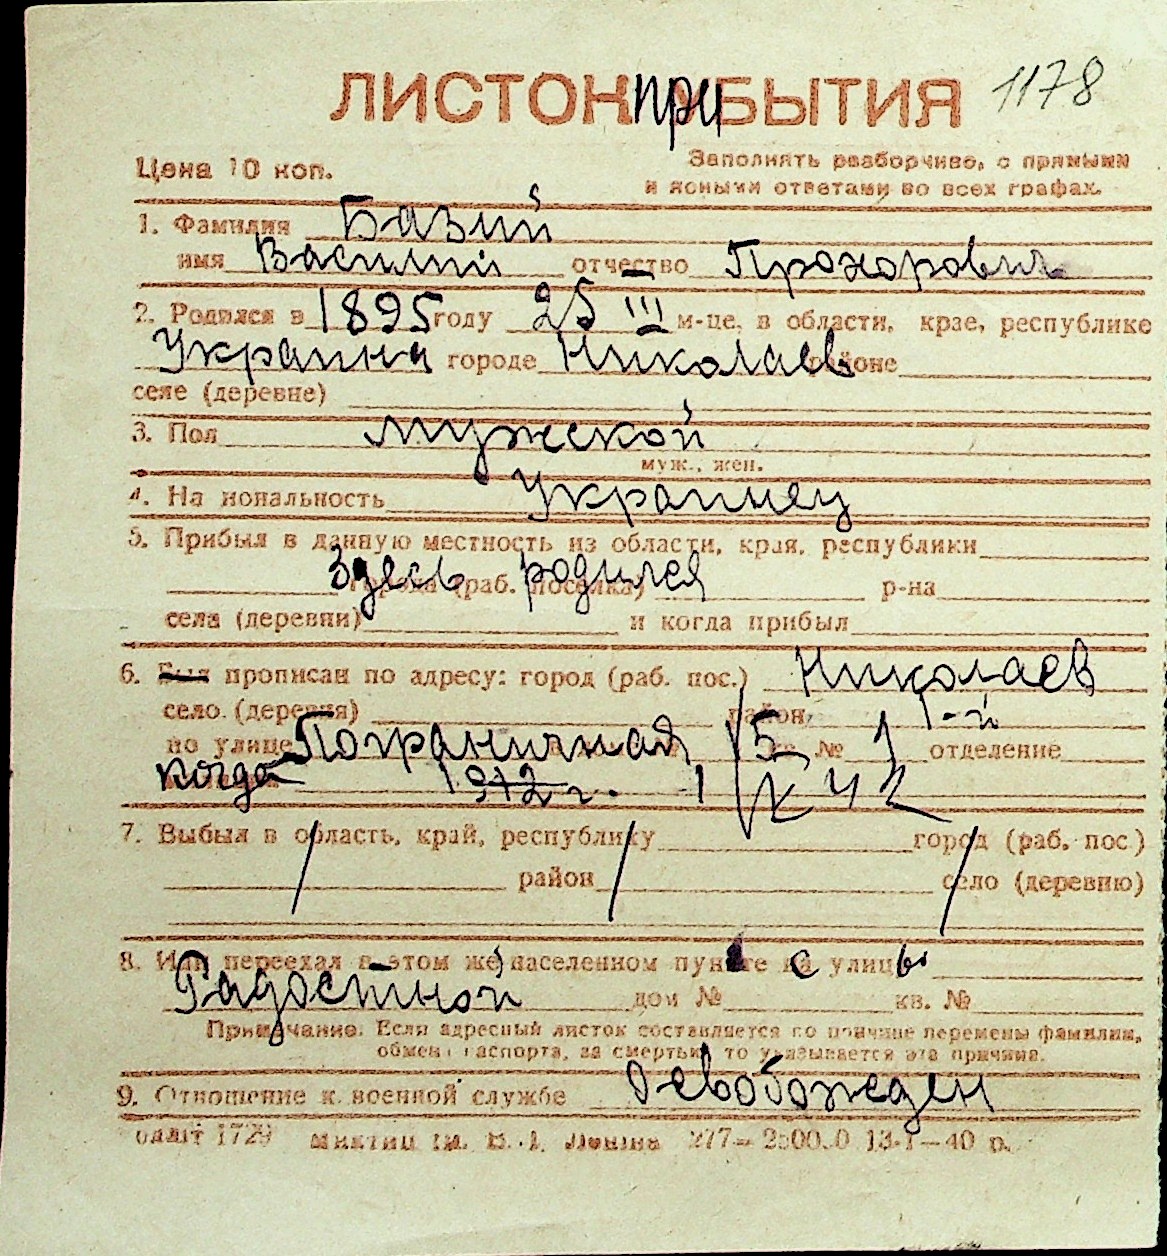 ЛИСТОК ПРИБЫТИЯ 1178
Цена 10 коп. Заполнять разборчиво, с прямыми
и ясными ответами во всех графах.
1. Фамилия Базий
имя Василий отчество Прохорович
2. Родился в 1895 году 25 III м-це, в области, крае, республике
Украина городе Николаев районе
селе (деревне)
3. Пол мужской
муж., жен.
4. Национальность Украинец
5. Прибыл в данную местность из области, края, республики
Здесь родился города (раб. поселка) р-на
села (деревни) и когда прибыл
6. Был прописан по адресу: город (раб. пос.) Николаев
село (деревня) район 1-й
по улице Пограничная 15 кв. № 1 отделение
когда 1942 г.
7. Выбыл в область, край, республику город (раб. пос.)
район село (деревню)
8. Или переехал в этом же населенном пункте с улицы
Радостной дом № кв. №
Примечание. Если адресный листок составляется по причине перемены фамилии,
обмена паспорта, за смертью, то указывается эта причина.
9. Отношение к военной службе Освобожден
1729 277— 13-1—40 р.